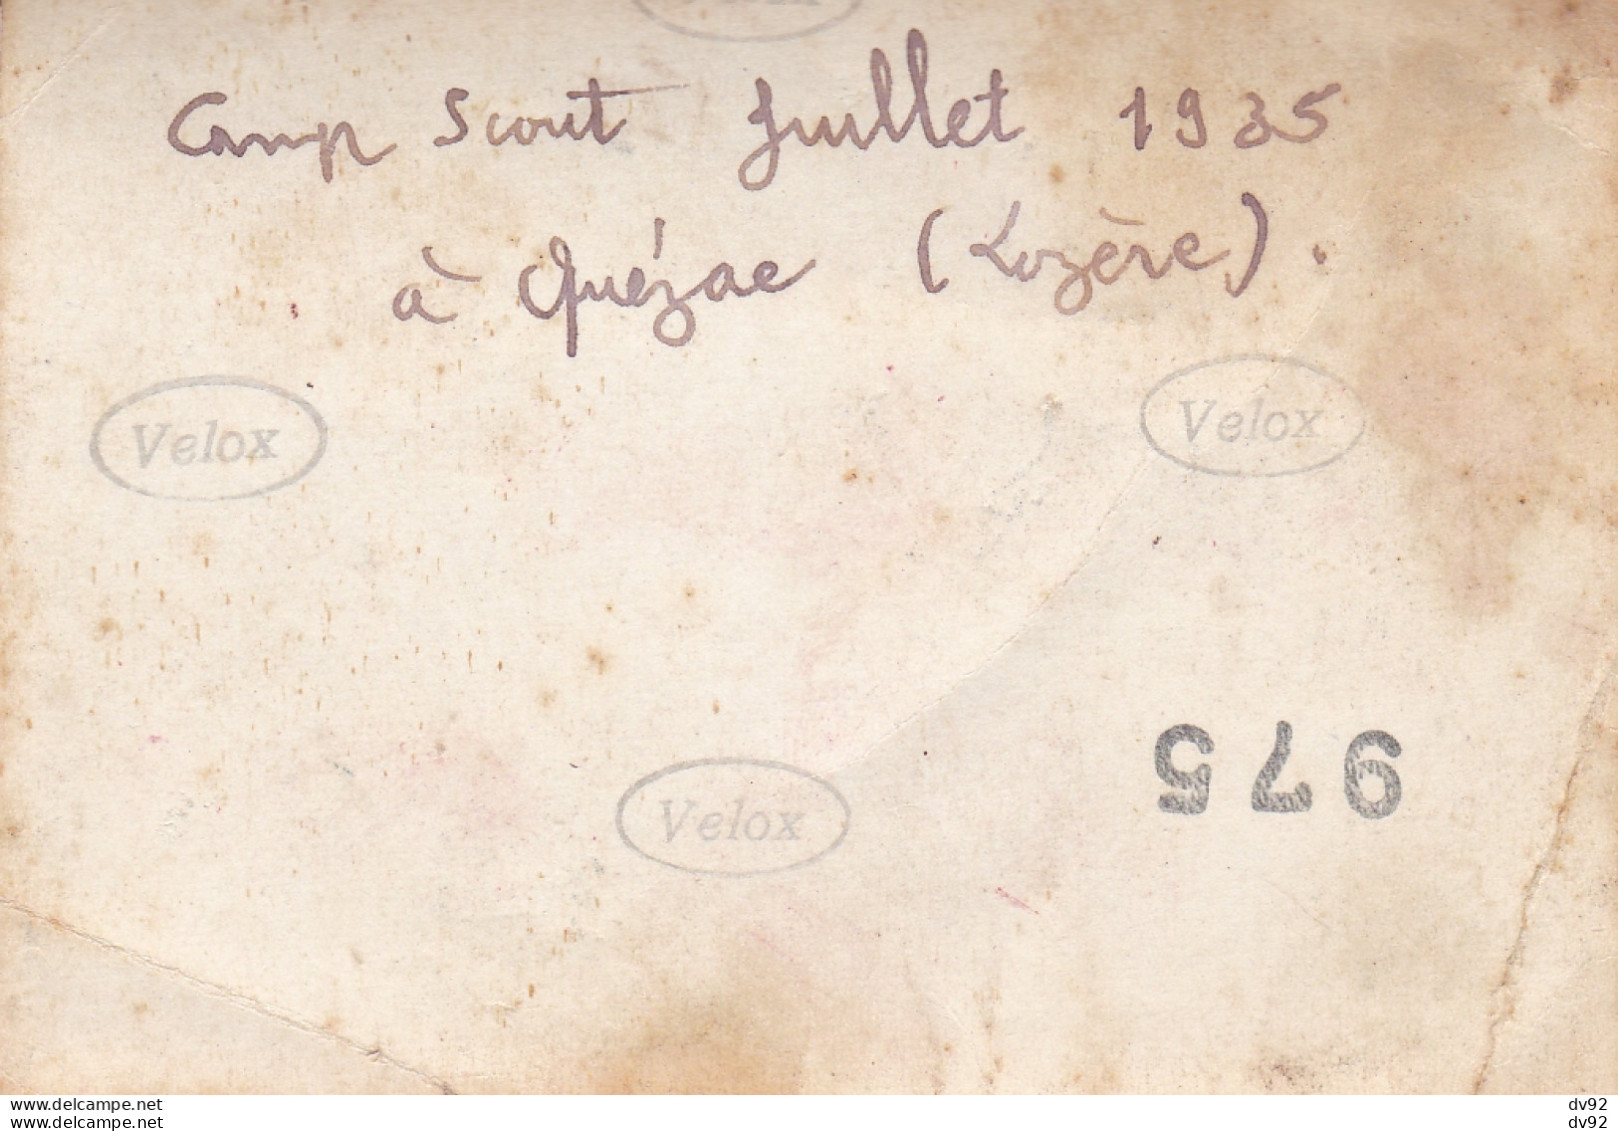 Camp Scout Juillet 1935
à Quézac (Lozère).
Velox
Velox
Velox
975
www.delcampe.net
https://www.delcampe.net
dv92
dv92